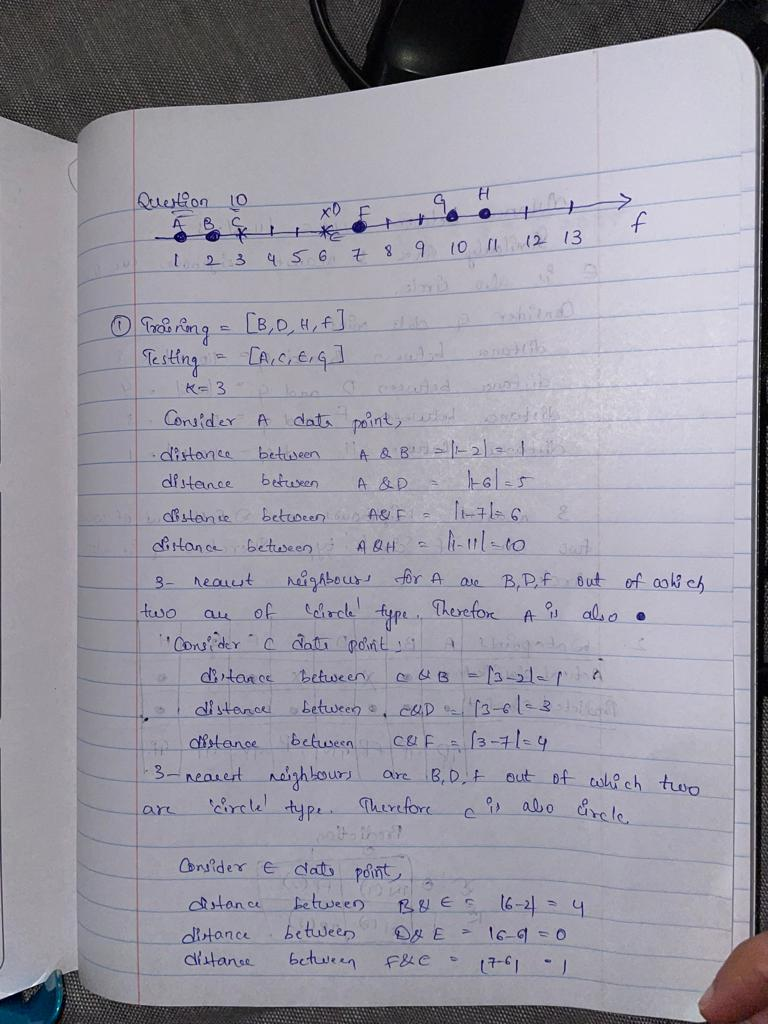 Question 10
A B C xD F G H
E
1 2 3 4 5 6 7 8 9 10 11 12 13 f
① Training = [B, D, H, F]
Testing = [A, C, E, G]
K=3
Consider A data point,
distance between A & B = |1-2| = 1
distance between A & D = |1-6| = 5
distance between A & F = |1-7| = 6
distance between A & H = |1-11| = 10
3- nearest neighbours for A are B, D, F out of which
two are of 'circle' type. Therefore A is also ●
Consider C data point,
distance between C & B = |3-2| = 1
distance between C & D = |3-6| = 3
distance between C & F = |3-7| = 4
3- nearest neighbours are B, D, F out of which two
are 'circle' type. Therefore C is also circle.
Consider E data point,
distance between B & E = |6-2| = 4
distance between D & E = |6-6| = 0
distance between F & E = |7-6| = 1